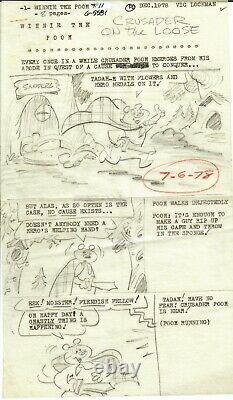 -1- WINNIE THE POOH #11
- 8 pages- G-5581
DEC, 1978 VIC LOCKMAN
WINNIE THE
POOH
CRUSADER
ON the LOOSE
EVERY ONCE IN A WHILE CRUSADER POOH EMERGES FROM HIS
ABODE IN QUEST OF A CAUSE TO CONQUER...
TADAH-M WITH FLOWERS AND
HERO MEDALS ON IT.
SANDERS
7-6-78
BUT ALAS, AS SO OFTEN IS THE
CASE, NO CAUSE EXISTS...
DOESN'T ANYBODY NEED A
HERO'S HELPING HAND!
POOH WALKS DEJECTEDLY
POOH: IT'S ENOUGH TO
MAKE A GUY RIP UP
HIS CAPE AND THROW
IN THE SPONGE.
EEK! MONSTER! FIENDISH FELLOW!
OH HAPPY DAY! A
GHASTLY THING IS
HAPPENING!
TADAH, HAVE NO
FEAR! CRUSADER POOH
IS NEAR!
(POOH RUNNING)